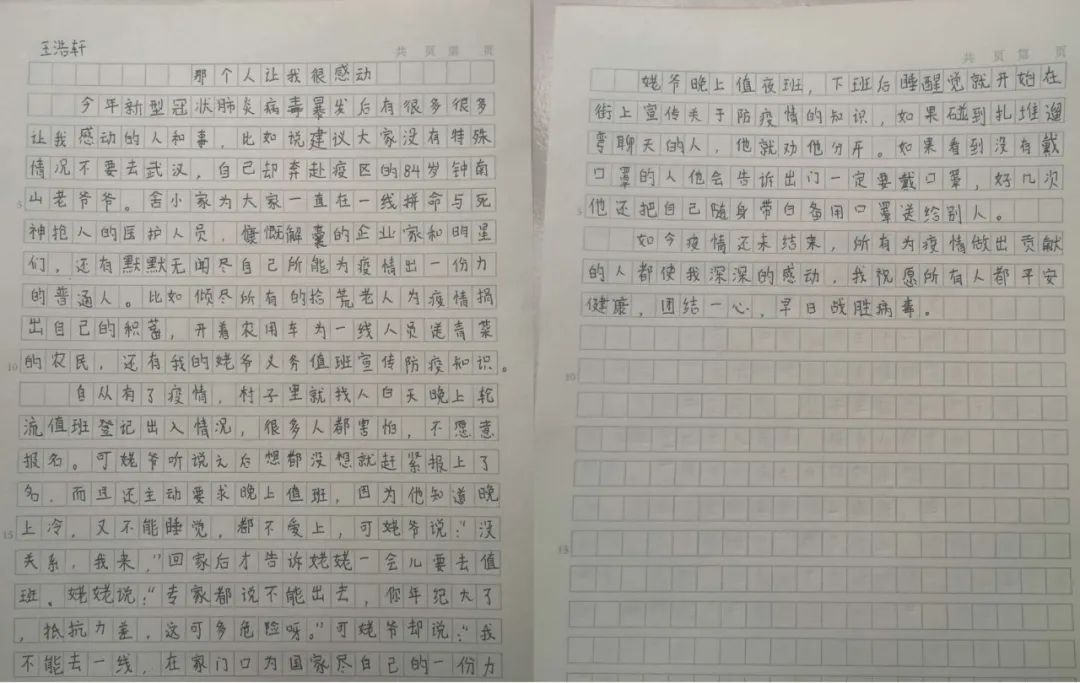 王浩轩
共 页 第 页
那个人让我很感动
今年新型冠状肺炎病毒暴发后有很多很多
让我感动的人和事，比如说建议大家没有特殊
情况不要去武汉，自己却奔赴疫区的84岁钟南
5 山老爷爷。舍小家为大家一直在一线拼命与死
神抢人的医护人员，慷慨解囊的企业家和明星
们，还有默默无闻尽自己所能为疫情出一份力
的普通人。比如倾尽所有的拾荒老人为疫情捐
出自己的积蓄，开着农用车为一线人员送青菜
10 的农民，还有我的姥爷义务值班宣传防疫知识。
自从有了疫情，村子里就找人白天晚上轮
流值班登记出入情况，很多人都害怕，不愿意
报名。可姥爷听说之后想都没想就赶紧报上了
名，而且还主动要求晚上值班，因为他知道晚
15 上冷，又不能睡觉，都不爱上，可姥爷说：“没
关系，我来，”回家后才告诉姥姥一会儿要去值
班。姥姥说：“专家都说不能出去，你年纪大了
，抵抗力差，这可多危险呀。”可姥爷却说：“我
不能去一线，在家门口为国家尽自己的一份力
共 页 第 页
姥爷晚上值夜班，下班后睡醒觉就开始在
街上宣传关于防疫情的知识，如果碰到扎堆遛
弯聊天的人，他就劝他分开。如果看到没有戴
口罩的人他会告诉出门一定要戴口罩，好几次
5 他还把自己随身带白备用口罩送给别人。
如今疫情还未结束，所有为疫情做出贡献
的人都使我深深的感动，我祝愿所有人都平安
健康，团结一心，早日战胜病毒。
10
15